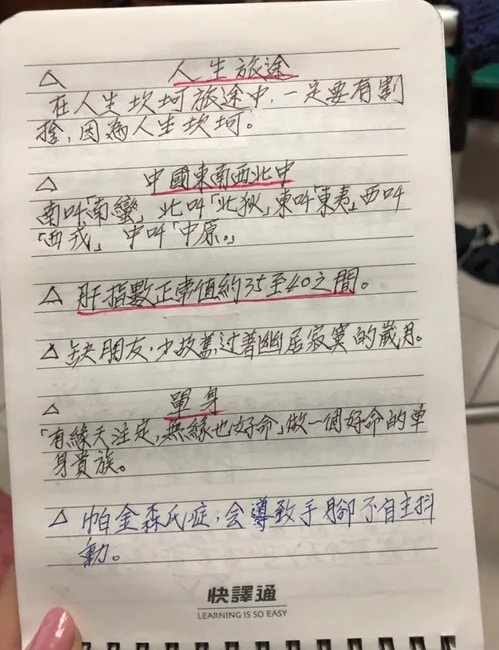 △ 人生旅途
在人生坎坷旅途中，一定要有割
捨，因為人生坎坷。
△ 中國東南西北中
南叫「南蠻」北叫「北狄」東叫「東夷」西叫
「西戎」 中叫「中原。」
△ 肝指數正常值約35至40之間。
△ 缺朋友，少故舊过著幽居寂寞的歲月。
△ 單身
「有緣天注定，無緣也好命」做一個好命的单
身貴族。
△ 帕金森氏症，会導致手腳不自主抖
動。
快譯通
LEARNING IS SO EASY